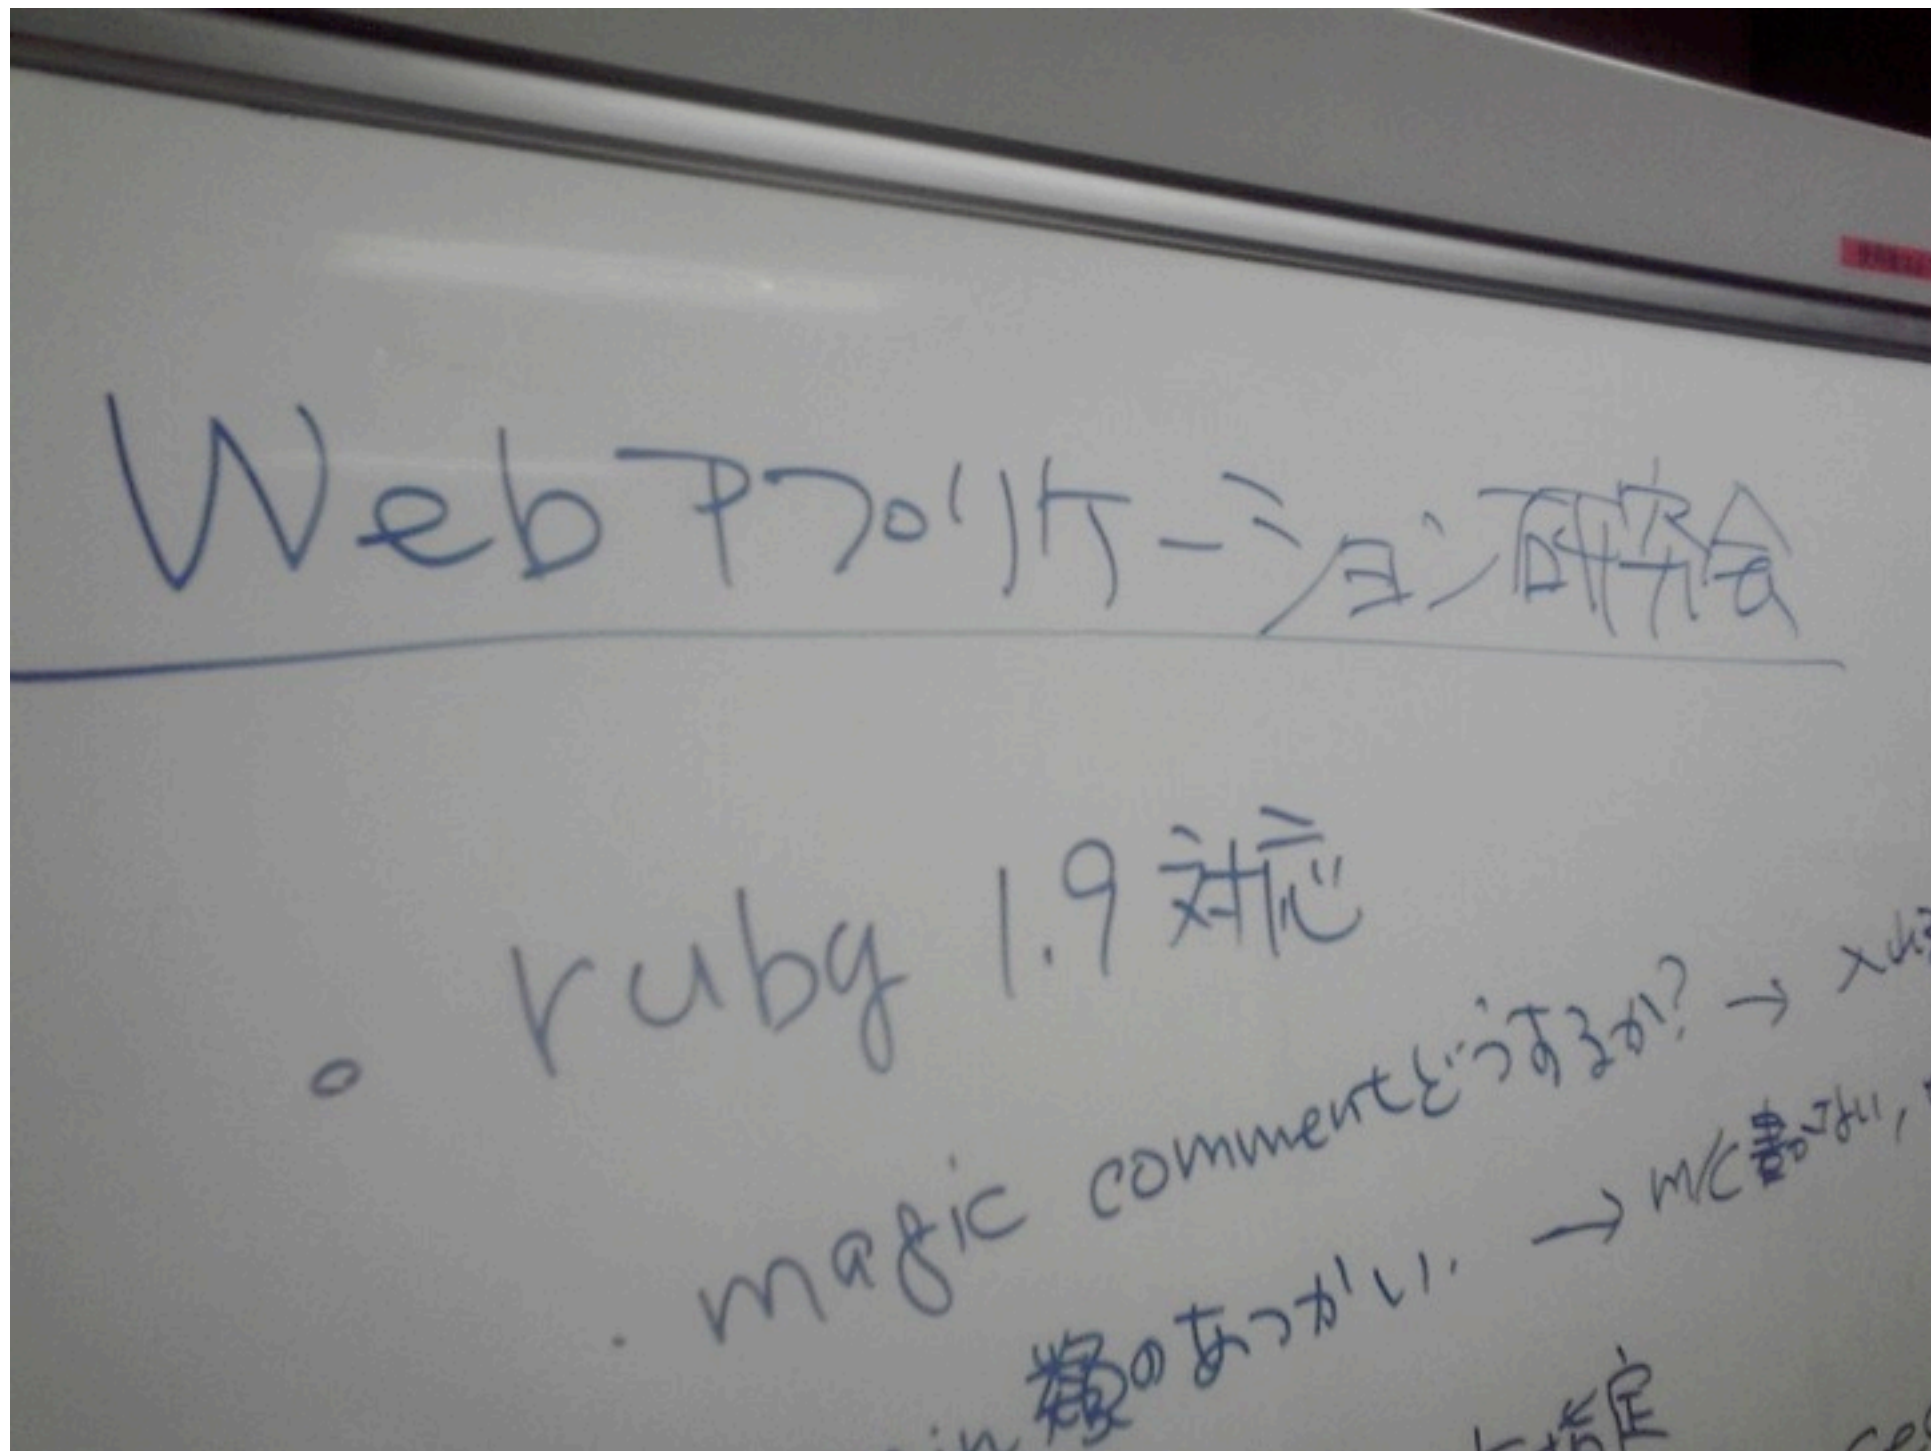 Webアプリケーション研究会
。ruby 1.9対応
. magic commentどうするか? →
のあつかい. → m/c書かない,
指定